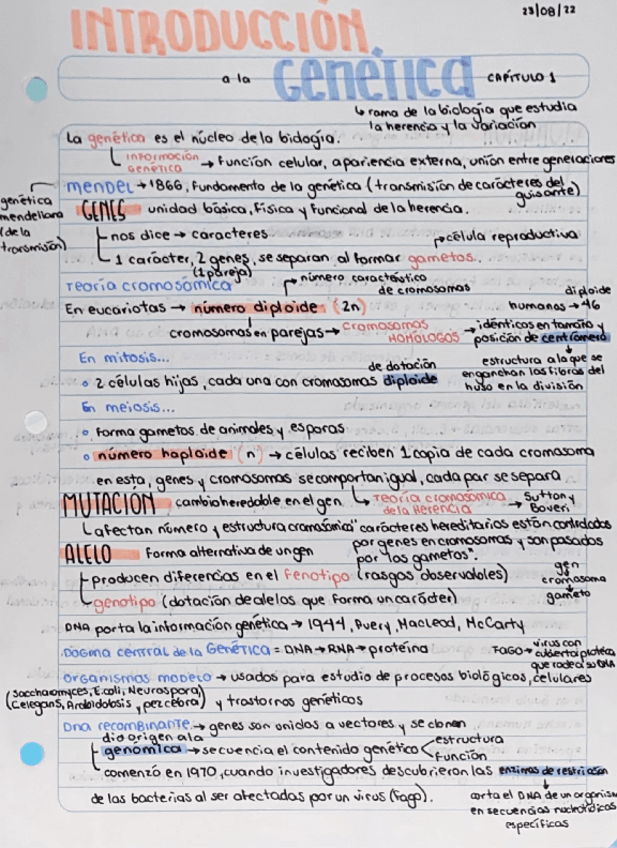 23/08/22
INTRODUCCIÓN
a la Genética CAPÍTULO 1
↳ rama de la biología que estudia
la herencia y la variación
La genética es el núcleo de la biología.
INFORMACIÓN GENÉTICA → Función celular, apariencia externa, unión entre generaciones
mendel → 1866, Fundamento de la genética (transmisión de carácteres del guisante)
genética
mendeliana
(de la
transmisión)
GENES unidad básica, Física y Funcional de la herencia.
nos dice → caracteres
célula reproductiva
1 carácter, 2 genes, se separan al formar gametos.
(1 pareja)
Teoría cromosómica
número característico
de cromosomas
diploide
humanos → 46
En eucariotas → número diploide (2n)
cromosomas en parejas → CROMOSOMAS HOMÓLOGOS → idénticos en tamaño y
posición de centrómero
estructura a la que se
enganchan las fibras del
huso en la división
En mitosis...
de dotación
• 2 células hijas, cada una con cromosomas diploide
En meiosis...
• Forma gametos de animales y esporas
• número haploide (n) → células reciben 1 copia de cada cromosoma
en esta, genes y cromosomas se comportan igual, cada par se separa
MUTACIÓN cambio heredable en el gen
↳ Teoría cromosómica de la Herencia → Sutton y Boveri
↳ afectan número y estructura cromosómica
"carácteres hereditarios están controlados
por genes en cromosomas y son pasados
por los gametos".
ALELO Forma alternativa de un gen
producen diferencias en el Fenotipo (rasgos observables)
genotipo (dotación de alelos que forma un carácter)
gen
↓
cromosoma
↓
gameto
DNA porta la información genética → 1944, Avery, MacLeod, McCarty
Dogma central de la Genética = DNA → RNA → proteína
FAGO → virus con
cubierta protéica
que rodea su DNA
organismos modelo → usados para estudio de procesos biológicos, celulares
(Saccharomyces, E.coli, Neurospora)
(C elegans, Arabidobsis, y pez cebra) y trastornos genéticos
Dna recombinante → genes son unidos a vectores y se clonan
dio origen a la
genómica → secuencia el contenido genético
estructura
Función
comenzó en 1970, cuando investigadores descubrieron las enzimas de restricción
de las bacterias al ser afectadas por un virus (Fago).
corta el DNA de un organismo
en secuencias nucleotídicas
específicas